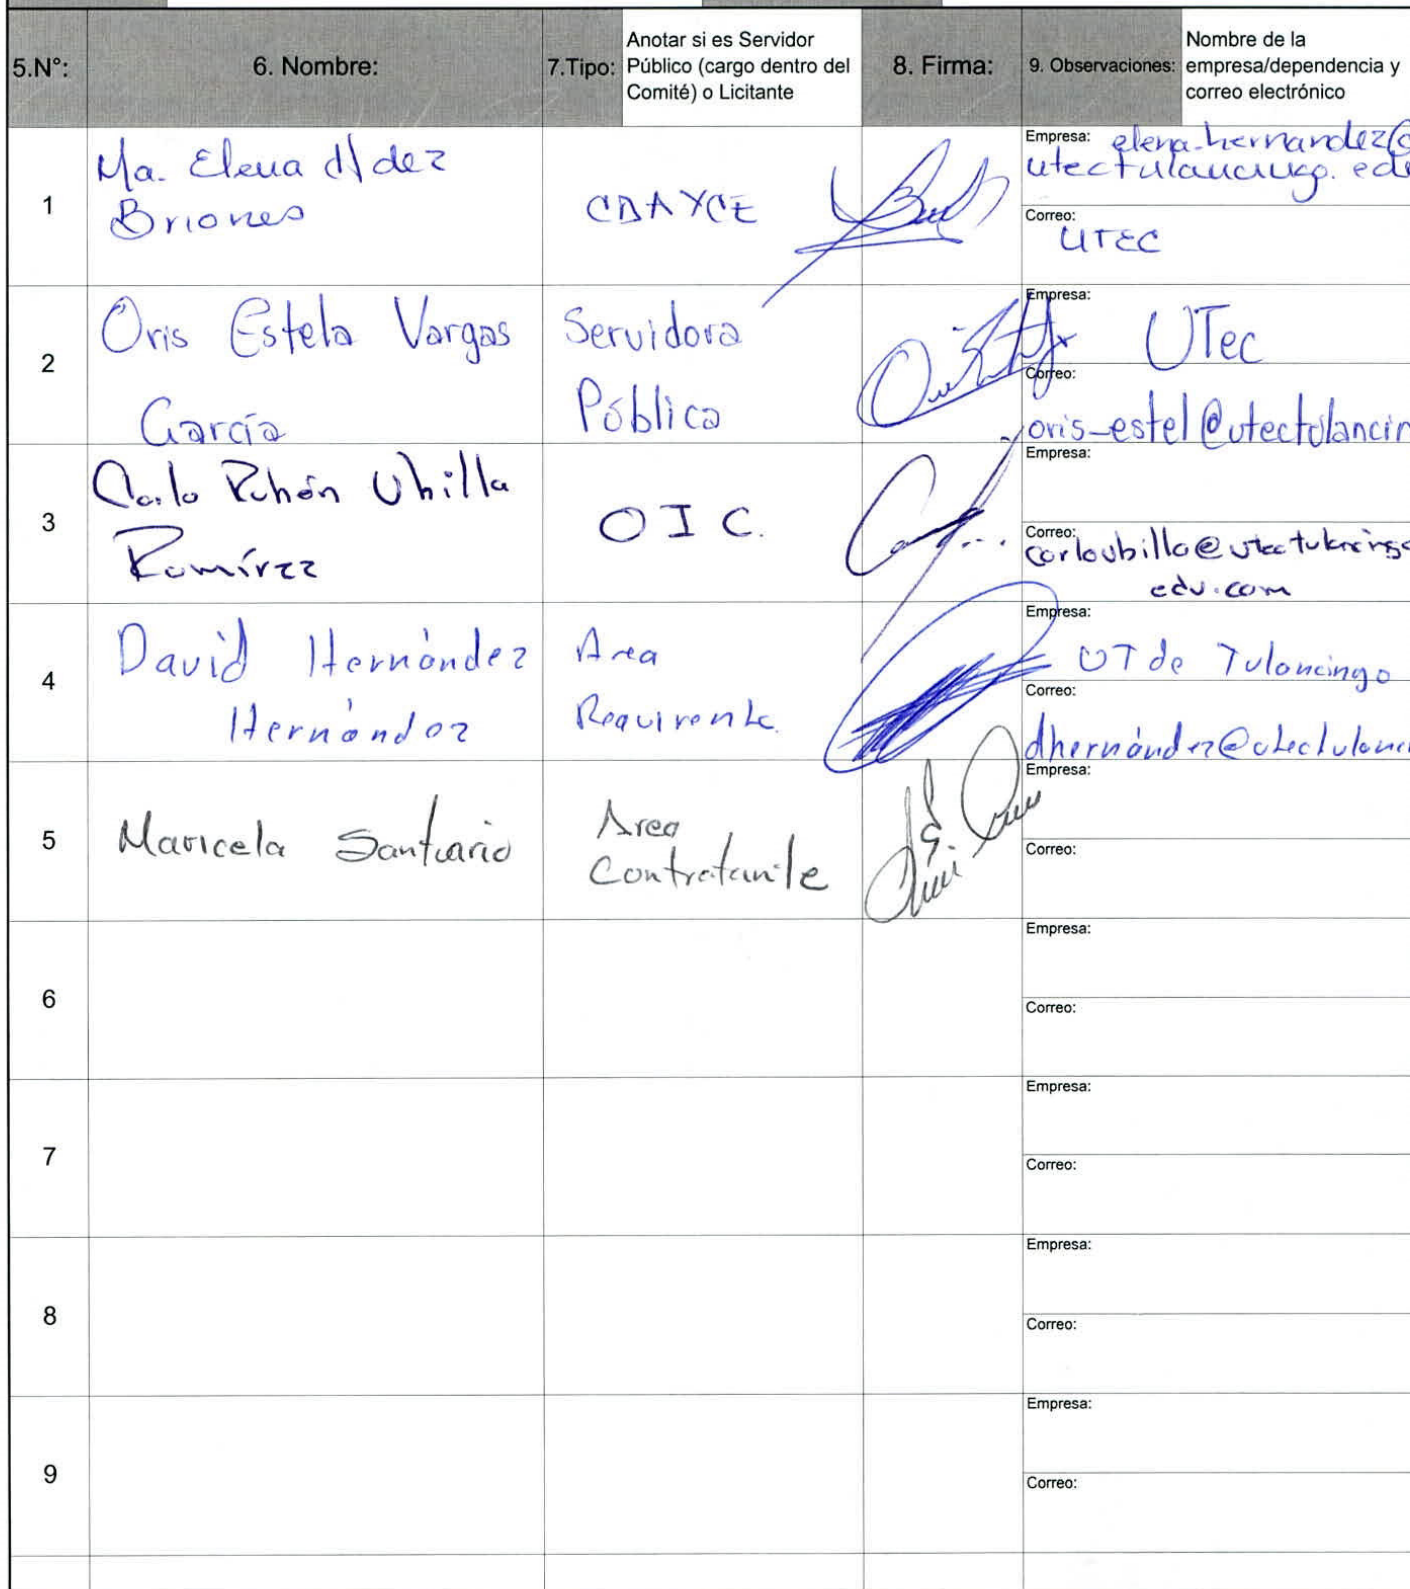 5.N°: 6. Nombre: 7.Tipo: Anotar si es Servidor Público (cargo dentro del Comité) o Licitante 8. Firma: 9. Observaciones: Nombre de la empresa/dependencia y correo electrónico
1
Ma. Elena Hdez
Briones
CDAYCE
Empresa: elena.hernandez@
utectulancingo.edu
Correo:
UTEC
2
Oris Estela Vargas
García
Servidora
Pública
Empresa:
UTec
Correo:
oris_estel@utectulancin
3
Carlo Rubén Ubilla
Ramírez
OIC.
Empresa:
Correo:
carloubilla@utectulancingo
edu.com
4
David Hernández
Hernández
Area
Requirente
Empresa:
UT de Tulancingo
Correo:
dhernández@utectulanci
5
Maricela Santuario
Area
Contratante
Empresa:
Correo:
6
Empresa:
Correo:
7
Empresa:
Correo:
8
Empresa:
Correo:
9
Empresa:
Correo: